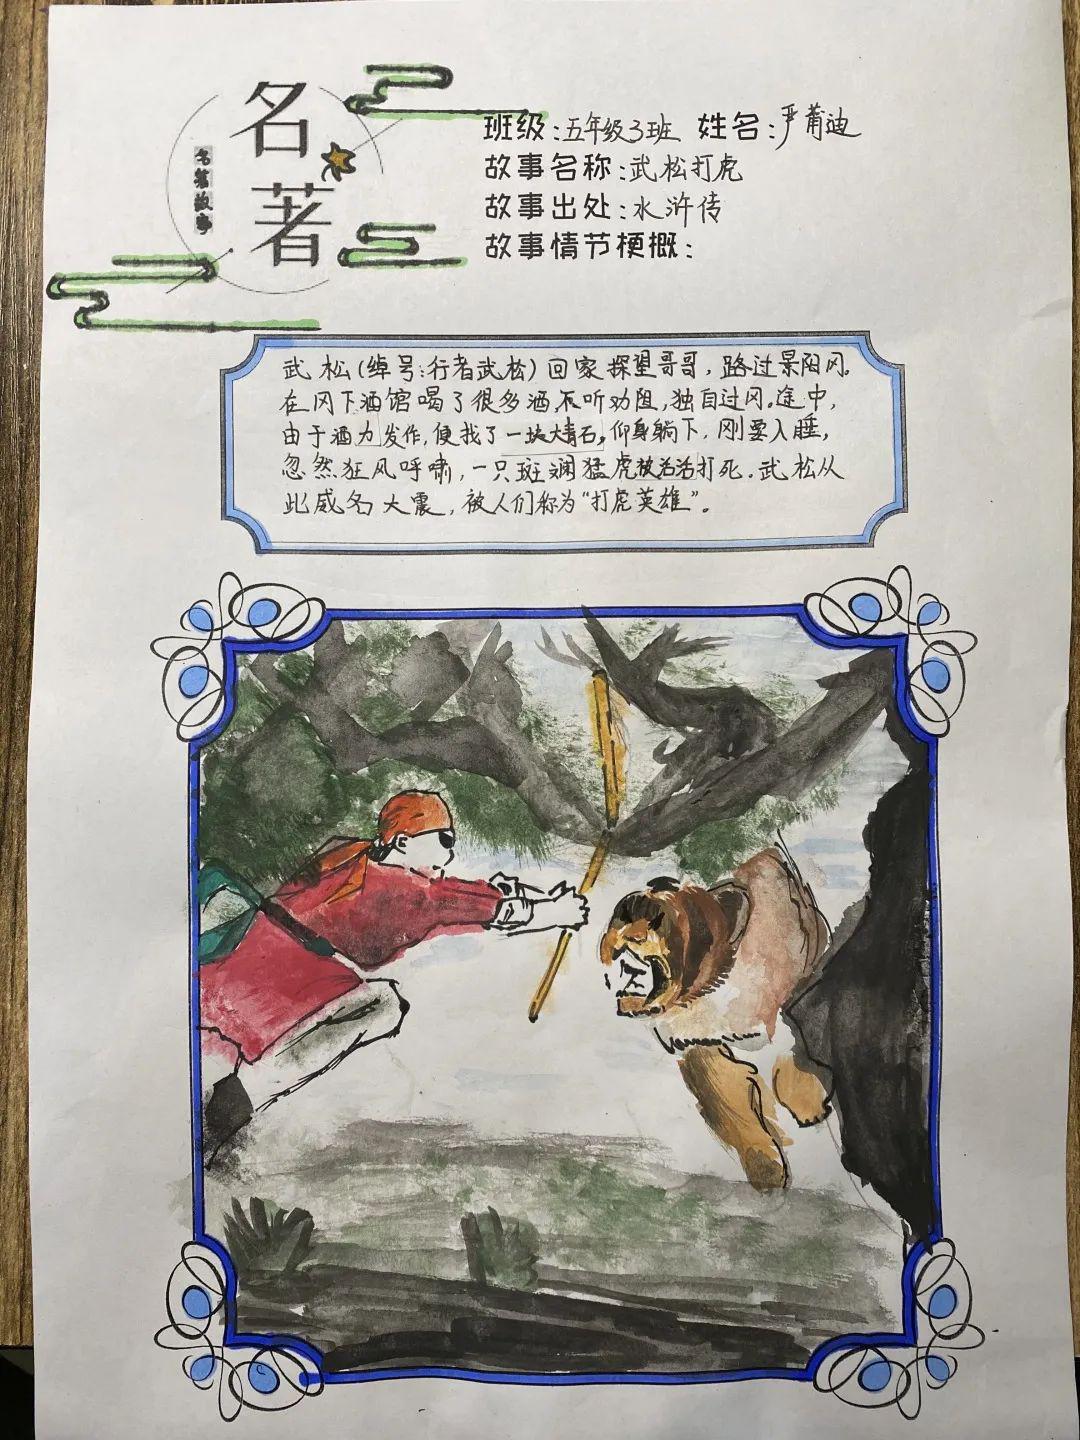 名著
名著故事
班级:五年级3班 姓名:严莆迪
故事名称:武松打虎
故事出处:水浒传
故事情节梗概:
武松(绰号:行者武松)回家探望哥哥,路过景阳冈。
在冈下酒馆喝了很多酒,不听劝阻,独自过冈。途中,
由于酒力发作,便找了一块大青石,仰身躺下,刚要入睡,
忽然狂风呼啸,一只斑斓猛虎被活活打死。武松从
此威名大震,被人们称为“打虎英雄”。